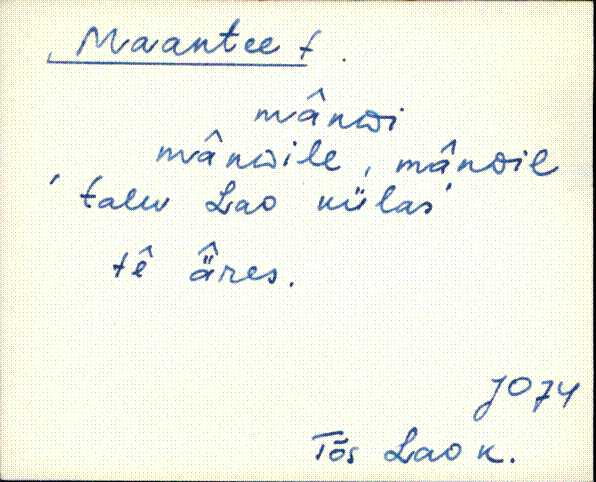 Maantee t.
mânɷi
mânɷile, mânɷil
'talu Lao külas'
tê ä̂res.
JO74
Tõs Lao k.